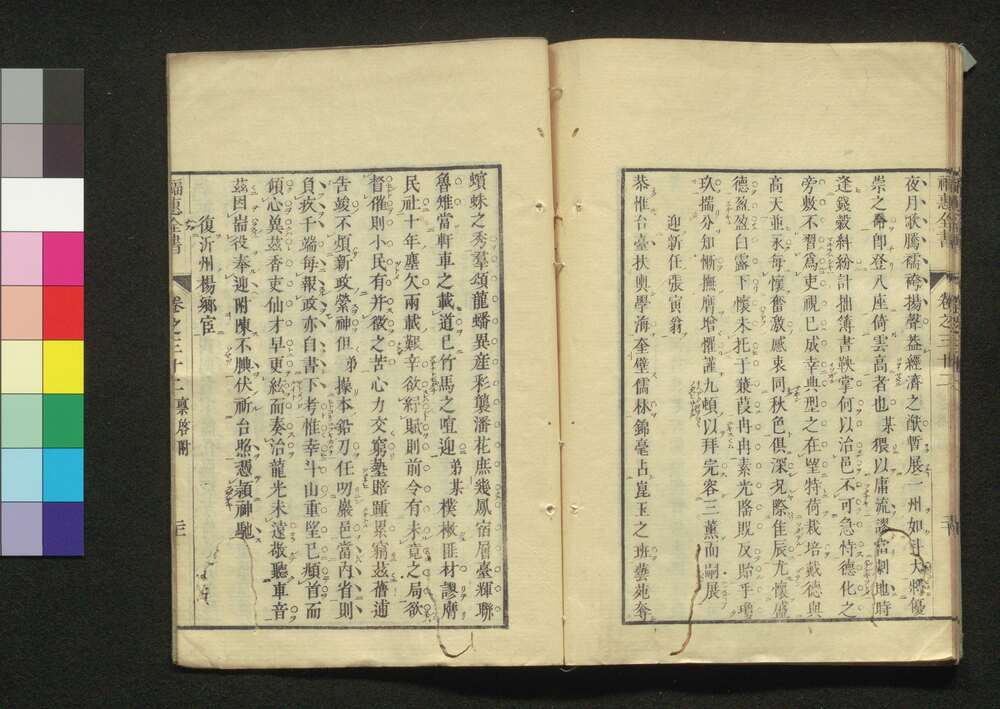 福惠全書 卷之三十二
夜月歌騰襦袴揚聲益經濟之猷暫展一州如斗大將優
崇之爵卽登八座倚雲高者也某猥以庸流謬當劇地時
逢錢穀紛計拙簿書鞅掌何以治邑不可急恃德化之
旁敷不習爲吏視已成幸典型之在望特荷栽培戴德與
高天並永每懷奮激感衷同秋色俱深况際佳辰尤懷盛
德盈盈白露下懷未托于蒹葭冉冉素光
玖揣分知慚撫膺增懼謹九頓以拜完容三薰而嗣展
迎新任張寅翁
恭惟台臺扶輿學海奎璧儒林錦毫占崑玉之班藝苑奪
蠙蛛之秀羣頌龍蟠異產彩襲潘花庶幾鳳宿層臺輝聯
魯雉當軒車之載道已竹馬之喧迎弟某樸樕匪材謬膺
民社十年塵欠兩載艱辛欲紓賦則前令有未竟之局欲
督催則小民有并徵之苦心力交窮墊賠踵累窮茲舊逋
告竣不煩新政縈神但弟操本鉛刀任叨巖邑當內省則
負疚千端每報政亦自書下考惟幸斗山重望已頫首而
傾心莫茲香吏仙才早更絃而奏治龍光未遠敬聽車音
茲因耑役奉迎附陳不腆伏祈台照憑穎神馳
復沂州楊鄉宦
福惠全書 卷之三十二 稟啓附 三